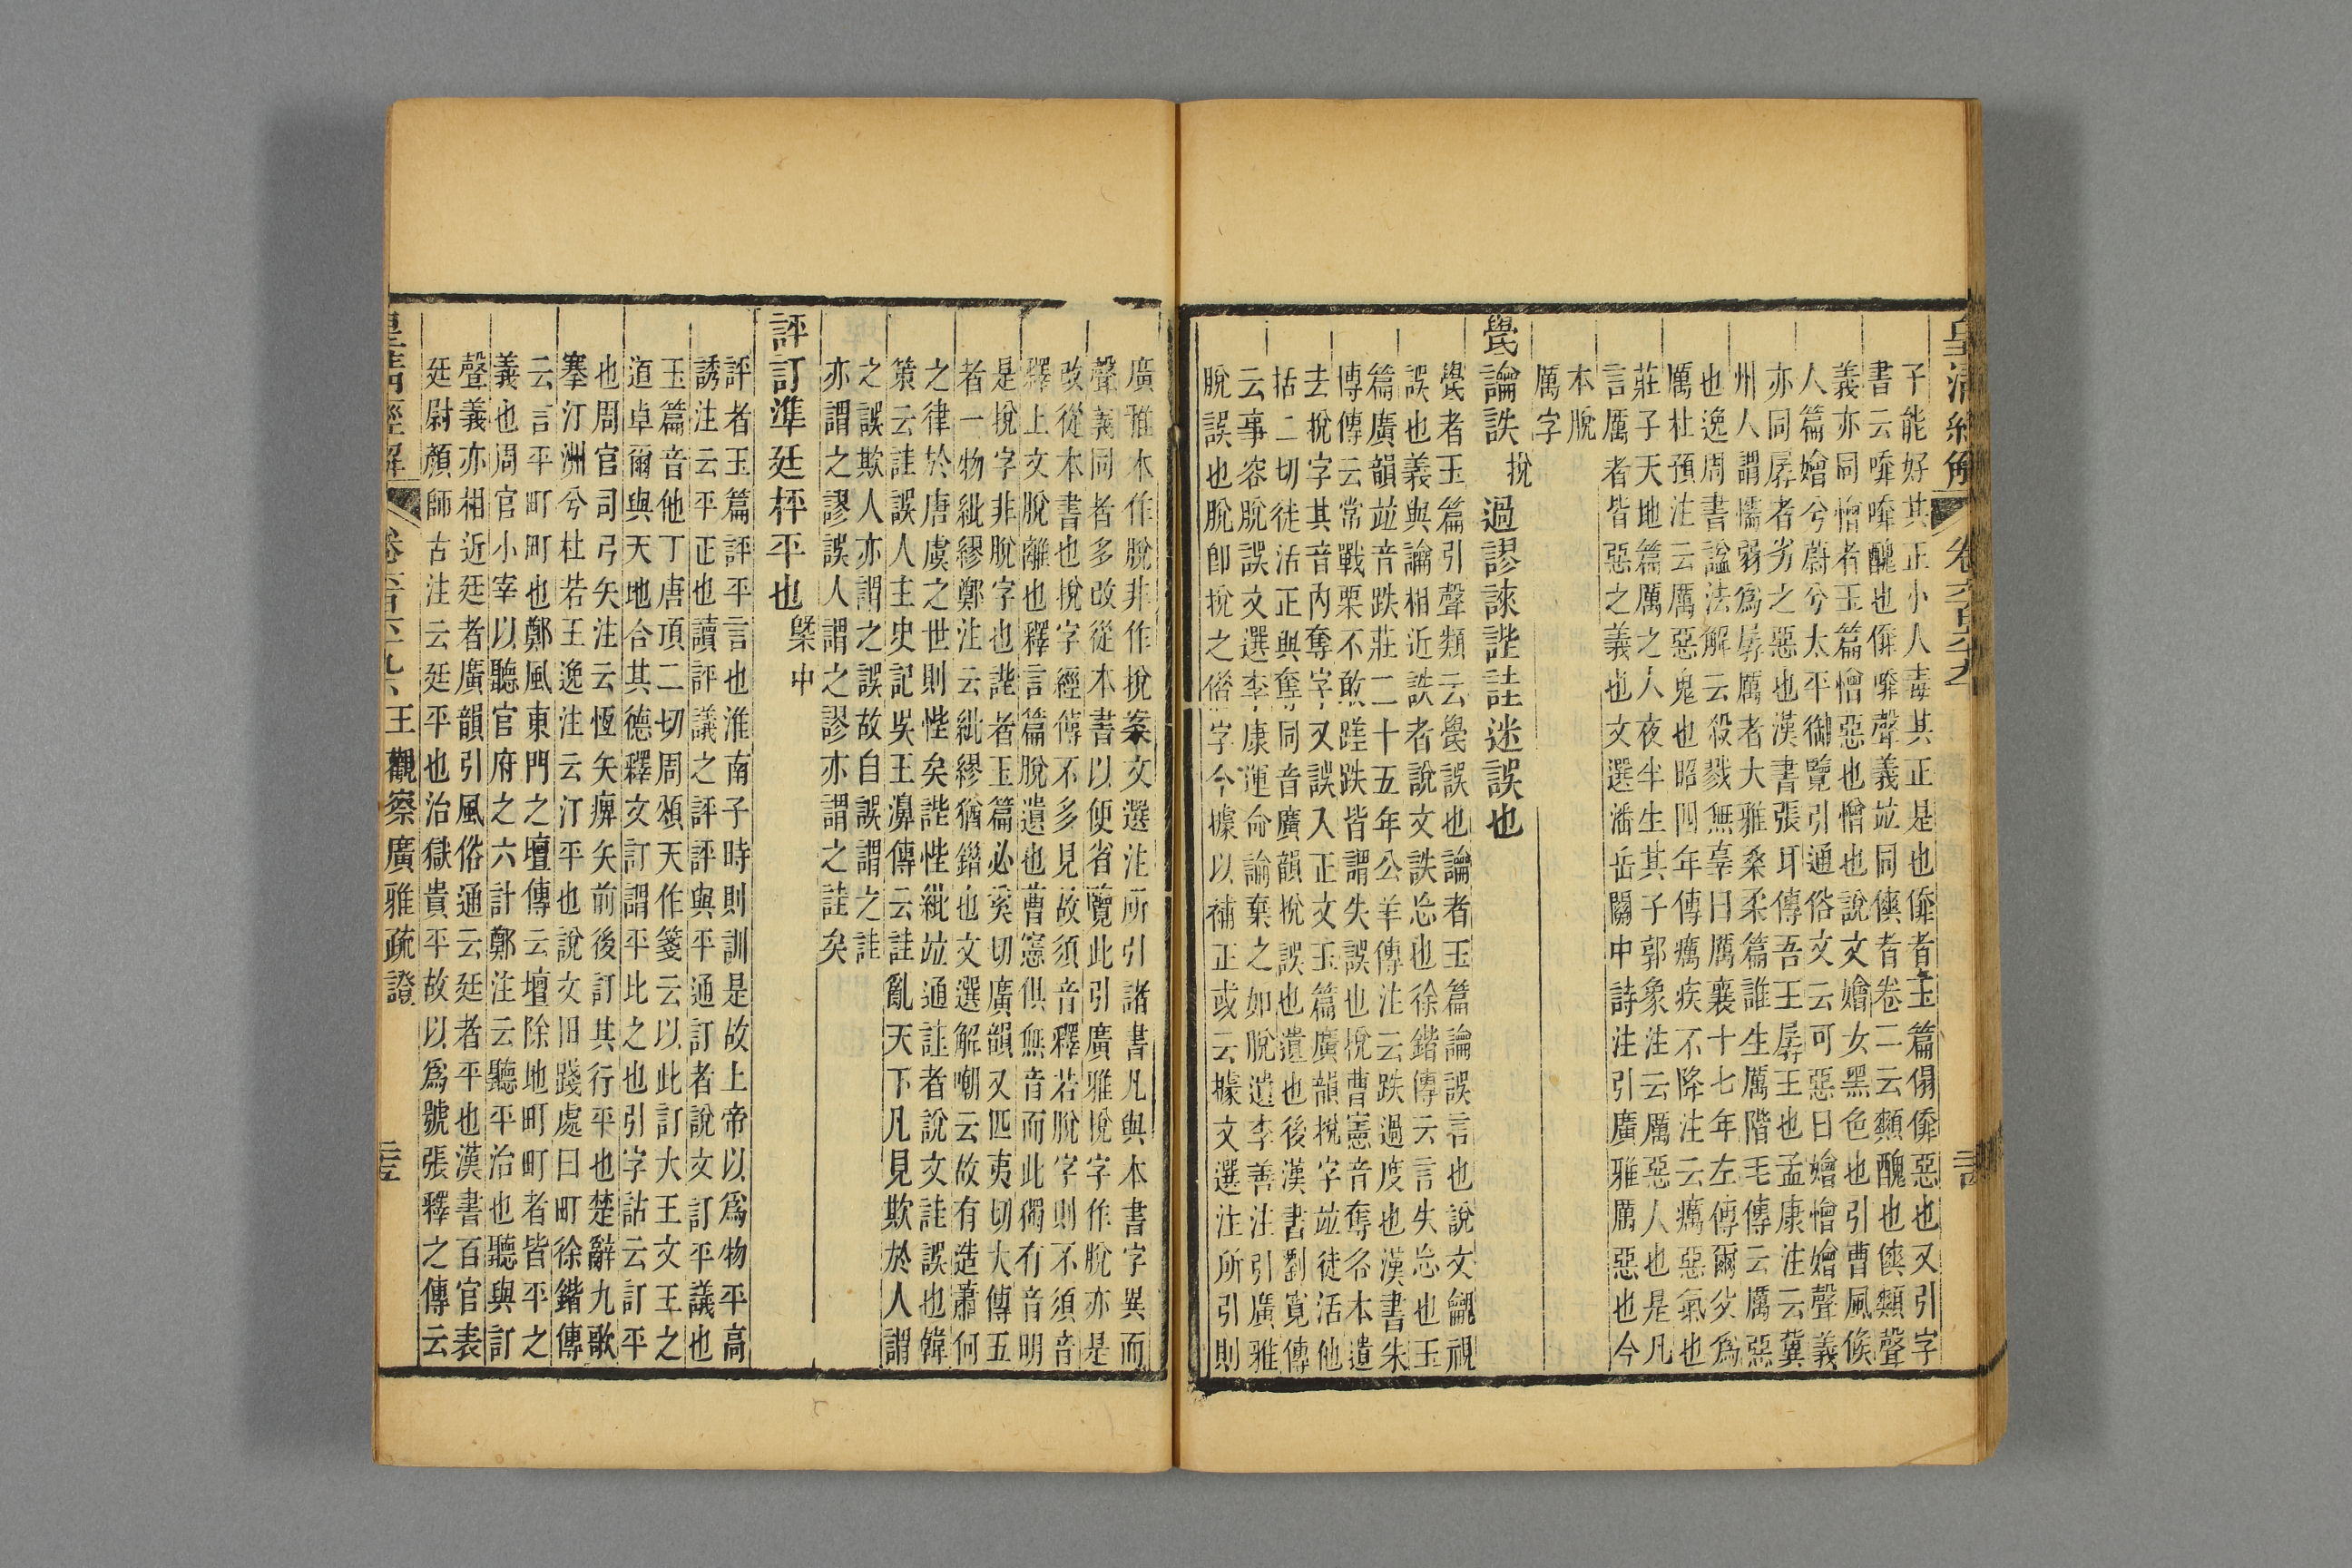 皇清經解 卷六百六十九
子能好其正小人毒其正是也㒑者玉篇傷㒑惡也又引字
書云㗓㗓醜也㒑㗓聲義竝同㒇者卷二云䫏醜也㒇䫏聲
義亦同憎者玉篇憎惡也憎也說文嬒女黑色也引曹風候
人篇嬒兮蔚兮太平御覽引通俗文云可惡曰嬒憎嬒聲義
亦同孱者劣之惡也漢書張耳傳吾王孱王也孟康注云冀
州人謂懦弱爲孱厲者大雅桑柔篇誰生厲階毛傳云厲惡
也逸周書諡法解云殺戮無辜曰厲襄十七年左傳爾父爲
厲杜預注云厲惡鬼也昭四年傳癘疾不降注云癘惡氣也
莊子天地篇厲之人夜半生其子郭象注云厲惡人也是凡
言厲者皆惡之義也文選潘岳關中詩注引廣雅厲惡也今
本脫
厲字
覺論詄捝過謬誺諎註迷誤也
覺者玉篇引聲類云覺誤也論者玉篇論誤言也說文覦視
誤也義與論相近詄者說文詄忘也徐鍇傳云言失忘也玉
篇廣韻竝音跌莊二十五年公羊傳注云跌過度也漢書朱
博傳云常戰栗不敢蹉跌皆謂失誤也捝曹憲音奪各本遺
去捝字其音內奪字又誤入正文玉篇廣韻捝字竝徒活他
括二切徒活正與奪同音廣韻捝誤也遺也後漢書劉寬傳
云事容脫誤文選李康運命論棄之如脫遺李善注引廣雅
脫誤也脫卽捝之俗字今據以補正或云據文選注所引則
廣雅本作脫非作捝案文選注所引諸書凡與本書字異而
聲義同者多改從本書以便省覽此引廣雅捝字作脫亦是
改從本書也捝字經傳不多見故須音釋若脫字則不須音
釋上文脫離也釋言篇脫遺也曹憲俱無音而此獨有音明
是捝字非脫字也諎者玉篇必奚切廣韻又匹夷切大傳五
者一物紕繆鄭注云紕繆猶錯也文選解嘲云故有造蕭何
之律於唐虞之世則悂矣諎悂紕竝通註者說文註誤也韓
策云註誤人主史記吳王濞傳云註亂天下凡見欺於人謂
之誤欺人亦謂之誤故自誤謂之註
亦謂之謬誤人謂之謬亦謂之註矣
評訂準廷枰平也㮣中
評者玉篇評平言也淮南子時則訓是故上帝以爲物平高
誘注云平正也讀評議之評評與平通訂者說文訂平議也
玉篇音他丁唐項二切周頌天作箋云以此訂大王文王之
道卓爾與天地合其德釋文訂謂平此之也引字詁云訂平
也周官司弓矢注云恆矢痹矢前後訂其行平也楚辭九歌
搴汀洲兮杜若王逸注云汀平也說文田踐處曰町徐鍇傳
云言平町町也鄭風東門之壇傳云壇除地町町者皆平之
義也周官小宰以聽官府之六計鄭注云聽平治也聽與訂
聲義亦相近廷者廣韻引風俗通云廷者平也漢書百官表
廷尉顏師古注云廷平也治獄貴平故以爲號張釋之傳云
皇清經解 卷六百六十九 王觀察廣雅疏證